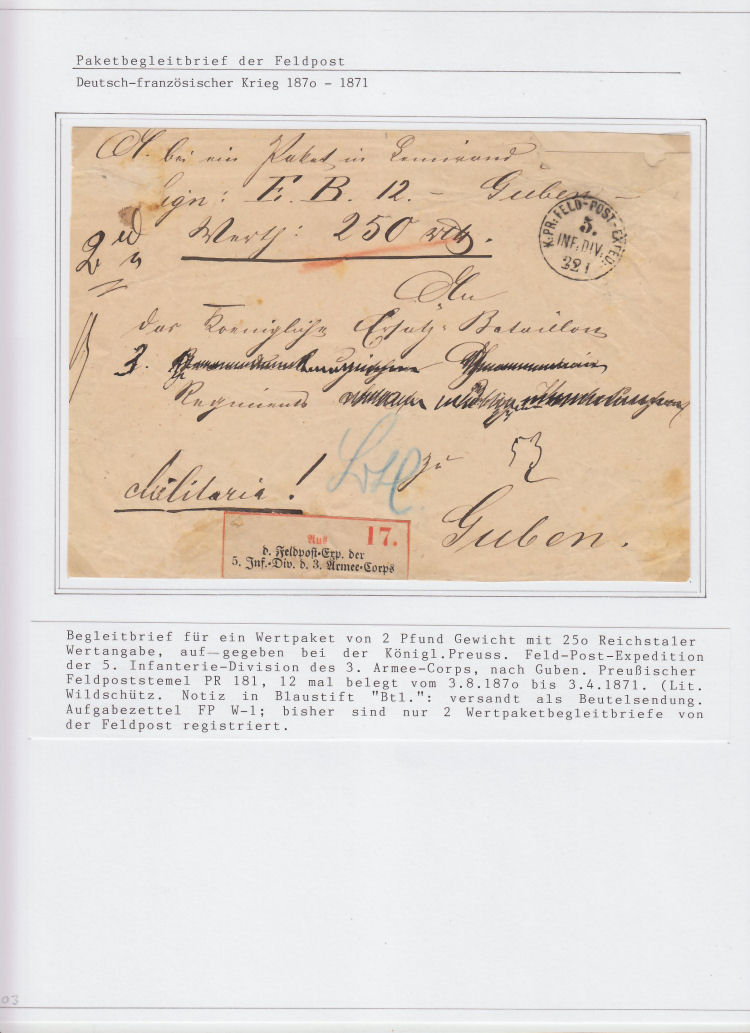 Paketbegleitbrief der Feldpost
Deutsch-französischer Krieg 187o - 1871
bei ein Paket in Leinwand
sign: E. B. 12. - Guben -
Werth: 250
2
K.PR. FELD-POST-EXPED.
5.
INF. DIV.
22 1
An
das Koenigliche Ersatz-Bataillon
3.
Regiments
zu 53
Militaria!
Guben.
Aus 17.
d. Feldpost-Exp. der
5. Inf.-Div. d. 3. Armee-Corps
Begleitbrief für ein Wertpaket von 2 Pfund Gewicht mit 25o Reichstaler
Wertangabe, auf—gegeben bei der Königl.Preuss. Feld-Post-Expedition
der 5. Infanterie-Division des 3. Armee-Corps, nach Guben. Preußischer
Feldpoststemel PR 181, 12 mal belegt vom 3.8.187o bis 3.4.1871. (Lit.
Wildschütz. Notiz in Blaustift "Btl.": versandt als Beutelsendung.
Aufgabezettel FP W-1; bisher sind nur 2 Wertpaketbegleitbriefe von
der Feldpost registriert.
03